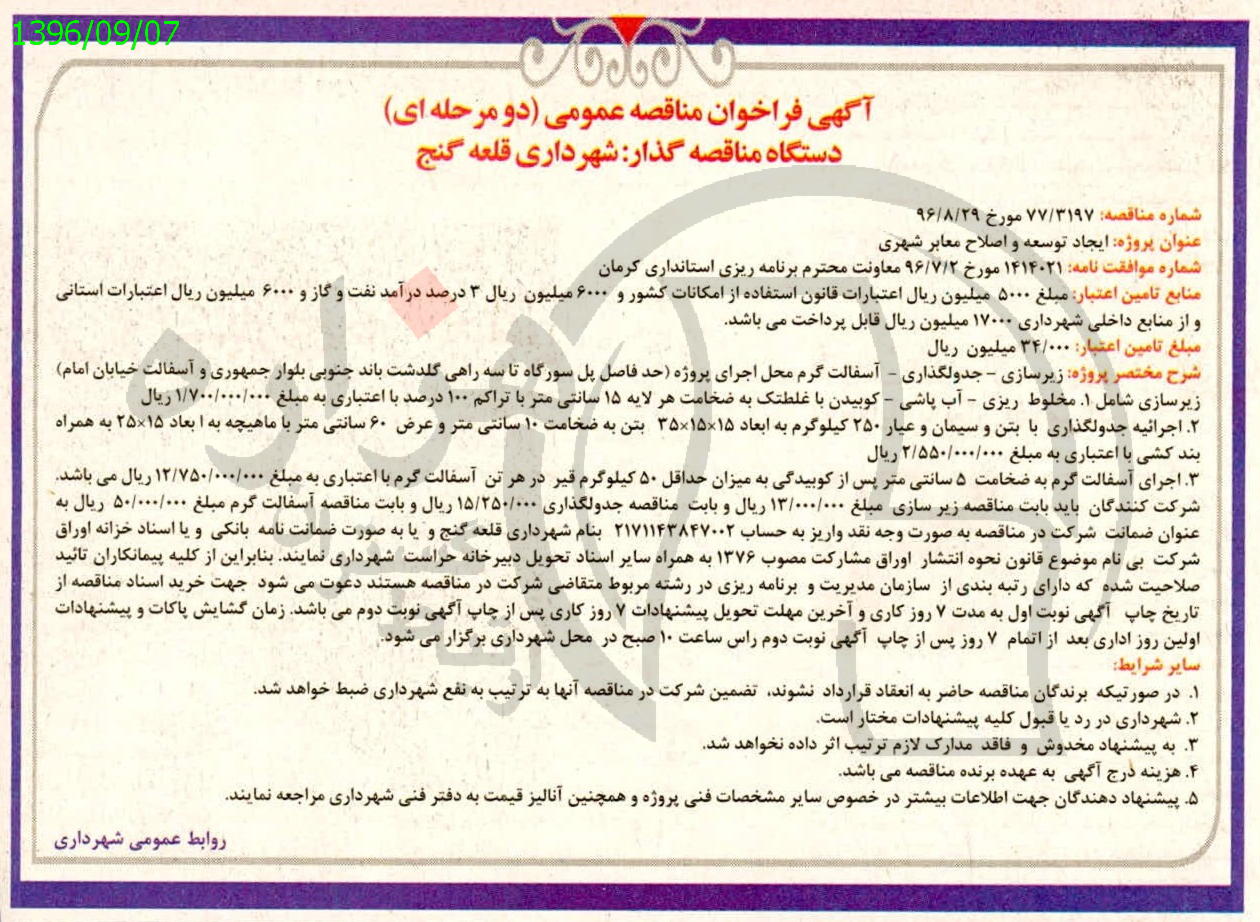 1396/09/07
آگهی فراخوان مناقصه عمومی (دو مرحله ای)
دستگاه مناقصه گذار: شهرداری قلعه گنج
شماره مناقصه: ۷۷/۳۱۹۷ مورخ ۹۶/۸/۲۹
عنوان پروژه: ایجاد توسعه و اصلاح معابر شهری
شماره موافقت نامه: ۱۴۱۴۰۲۱ مورخ ۹۶/۷/۲ معاونت محترم برنامه ریزی استانداری کرمان
منابع تامین اعتبار: مبلغ ۵۰۰۰ میلیون ریال اعتبارات قانون استفاده از امکانات کشور و ۶۰۰۰ میلیون ریال ۳ درصد درآمد نفت و گاز و ۶۰۰۰ میلیون ریال اعتبارات استانی
و از منابع داخلی شهرداری ۱۷۰۰۰ میلیون ریال قابل پرداخت می باشد.
مبلغ تامین اعتبار: ۳۴/۰۰۰ میلیون ریال
شرح مختصر پروژه: زیرسازی - جدولگذاری - آسفالت گرم محل اجرای پروژه (حد فاصل پل سورگاه تا سه راهی گلدشت باند جنوبی بلوار جمهوری و آسفالت خیابان امام)
زیرسازی شامل ۱. مخلوط ریزی - آب پاشی - کوبیدن با غلطتک به ضخامت هر لایه ۱۵ سانتی متر با تراکم ۱۰۰ درصد با اعتباری به مبلغ ۱/۷۰۰/۰۰۰/۰۰۰ ریال
۲. اجرائیه جدولگذاری با بتن و سیمان و عیار ۲۵۰ کیلوگرم به ابعاد ۱۵×۱۵×۳۵ بتن به ضخامت ۱۰ سانتی متر و عرض ۶۰ سانتی متر با ماهیچه به ا بعاد ۱۵×۲۵ به همراه
بند کشی با اعتباری به مبلغ ۲/۵۵۰/۰۰۰/۰۰۰ ریال
۳. اجرای آسفالت گرم به ضخامت ۵ سانتی متر پس از کوبیدگی به میزان حداقل ۵۰ کیلوگرم قیر در هر تن آسفالت گرم با اعتباری به مبلغ ۱۲/۷۵۰/۰۰۰/۰۰۰ ریال می باشد.
شرکت کنندگان باید بابت مناقصه زیر سازی مبلغ ۱۳/۰۰۰/۰۰۰ ریال و بابت مناقصه جدولگذاری ۱۵/۲۵۰/۰۰۰ ریال و بابت مناقصه آسفالت گرم مبلغ ۵۰/۰۰۰/۰۰۰ ریال به
عنوان ضمانت شرکت در مناقصه به صورت وجه نقد واریز به حساب ۲۱۷۱۱۴۳۸۴۷۰۰۲ بنام شهرداری قلعه گنج و یا به صورت ضمانت نامه بانکی و یا اسناد خزانه اوراق
شرکت بی نام موضوع قانون نحوه انتشار اوراق مشارکت مصوب ۱۳۷۶ به همراه سایر اسناد تحویل دبیرخانه حراست شهرداری نمایند. بنابراین از کلیه پیمانکاران تائید
صلاحیت شده که دارای رتبه بندی از سازمان مدیریت و برنامه ریزی در رشته مربوط متقاضی شرکت در مناقصه هستند دعوت می شود جهت خرید اسناد مناقصه از
تاریخ چاپ آگهی نوبت اول به مدت ۷ روز کاری و آخرین مهلت تحویل پیشنهادات ۷ روز کاری پس از چاپ آگهی نوبت دوم می باشد. زمان گشایش پاکات و پیشنهادات
اولین روز اداری بعد از اتمام ۷ روز پس از چاپ آگهی نوبت دوم راس ساعت ۱۰ صبح در محل شهرداری برگزار می شود.
سایر شرایط:
۱. در صورتیکه برندگان مناقصه حاضر به انعقاد قرارداد نشوند، تضمین شرکت در مناقصه آنها به ترتیب به نفع شهرداری ضبط خواهد شد.
۲. شهرداری در رد یا قبول کلیه پیشنهادات مختار است.
۳. به پیشنهاد مخدوش و فاقد مدارک لازم ترتیب اثر داده نخواهد شد.
۴. هزینه درج آگهی به عهده برنده مناقصه می باشد.
۵. پیشنهاد دهندگان جهت اطلاعات بیشتر در خصوص سایر مشخصات فنی پروژه و همچنین آنالیز قیمت به دفتر فنی شهرداری مراجعه نمایند.
روابط عمومی شهرداری